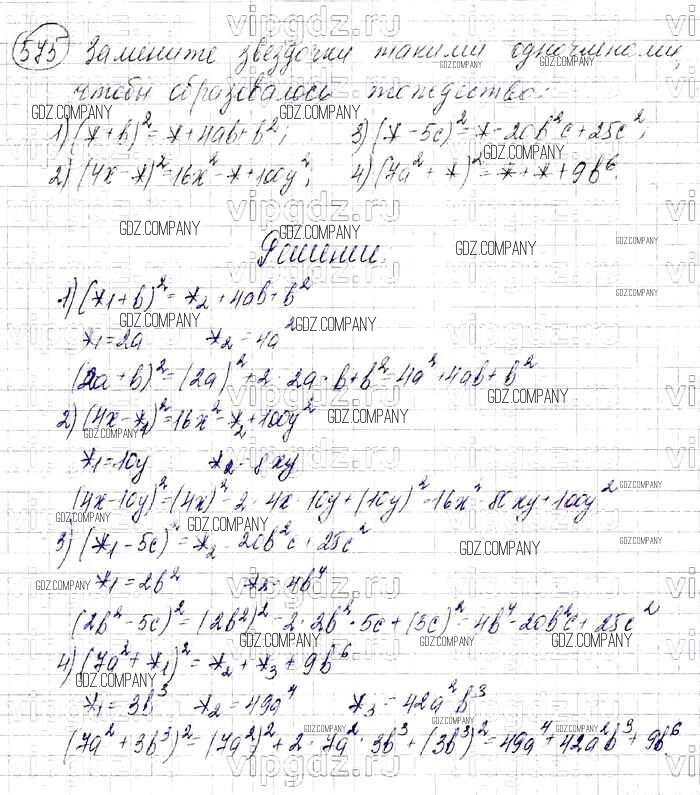 575 Замените звездочки такими одночленами,
чтобы образовалось тождество:
1) (* + b)² = * + 4ab + b²; 3) (* - 5c)² = * - 20b²c + 25c²;
2) (4x - *)² = 16x² - * + 100y²; 4) (7a² + *)² = * + * + 9b⁶.
Решение.
1) (*₁ + b)² = *₂ + 4ab + b²
*₁ = 2a *₂ = 4a²
(2a + b)² = (2a)² + 2 · 2a · b + b² = 4a² + 4ab + b²
2) (4x - *₁)² = 16x² - *₂ + 100y²
*₁ = 10y *₂ = 8xy
(4x - 10y)² = (4x)² - 2 · 4x · 10y + (10y)² = 16x² - 80xy + 100y²
3) (*₁ - 5c)² = *₂ - 20b²c + 25c²
*₁ = 2b² *₂ = 4b⁴
(2b² - 5c)² = (2b²)² - 2 · 2b² · 5c + (5c)² = 4b⁴ - 20b²c + 25c²
4) (7a² + *₁)² = *₂ + *₃ + 9b⁶
*₁ = 3b³ *₂ = 49a⁴ *₃ = 42a²b³
(7a² + 3b³)² = (7a²)² + 2 · 7a² · 3b³ + (3b³)² = 49a⁴ + 42a²b³ + 9b⁶